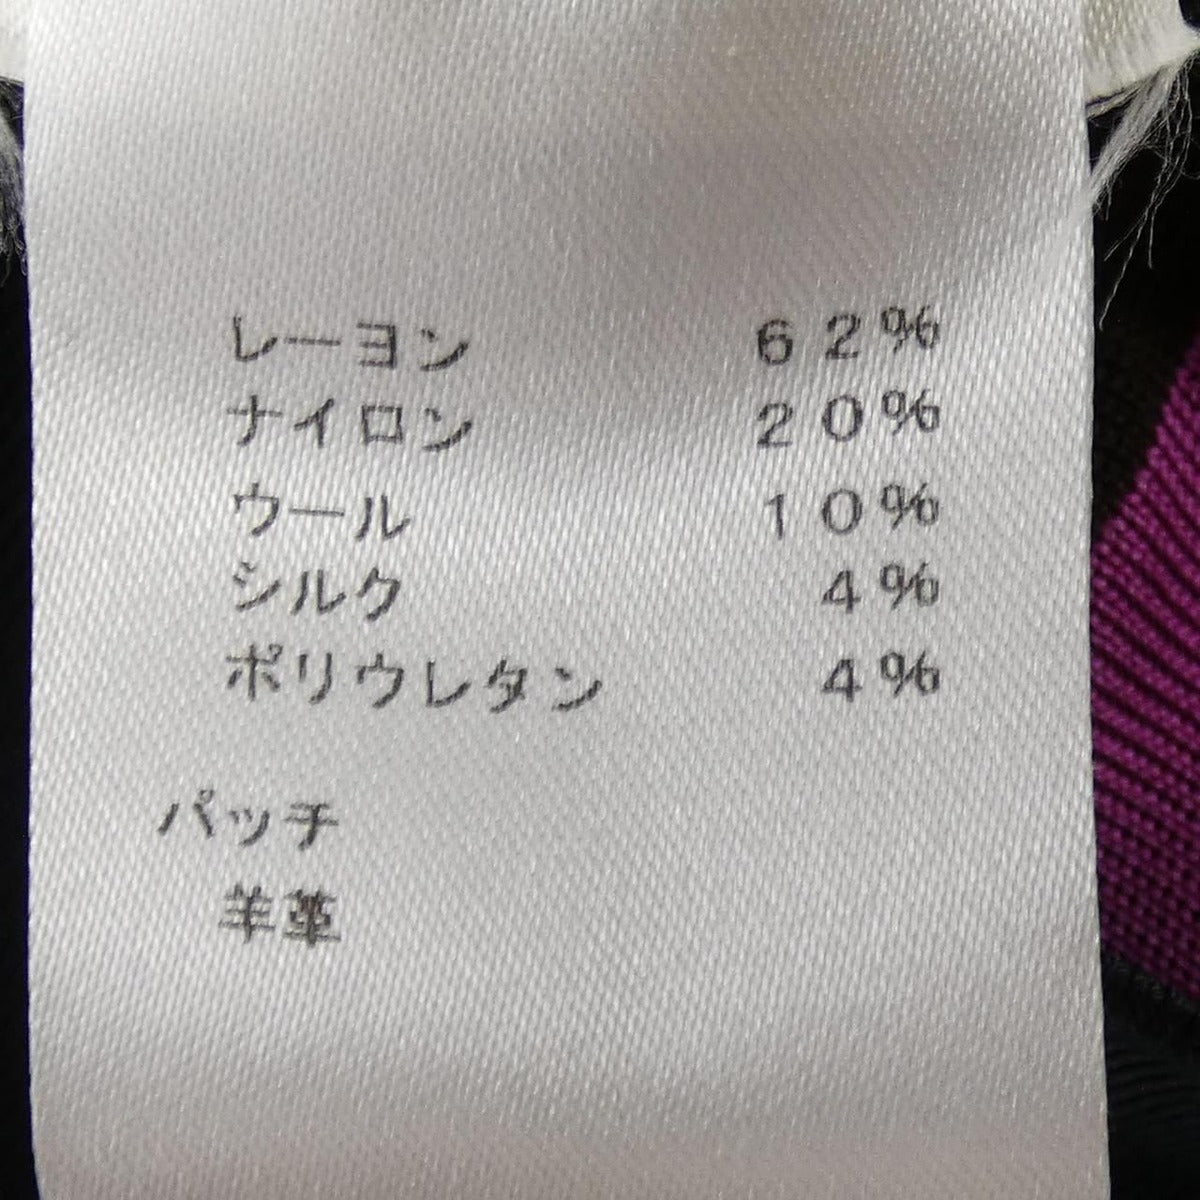 レーヨン 62%
ナイロン 20%
ウール 10%
シルク 4%
ポリウレタン 4%
パッチ
羊革